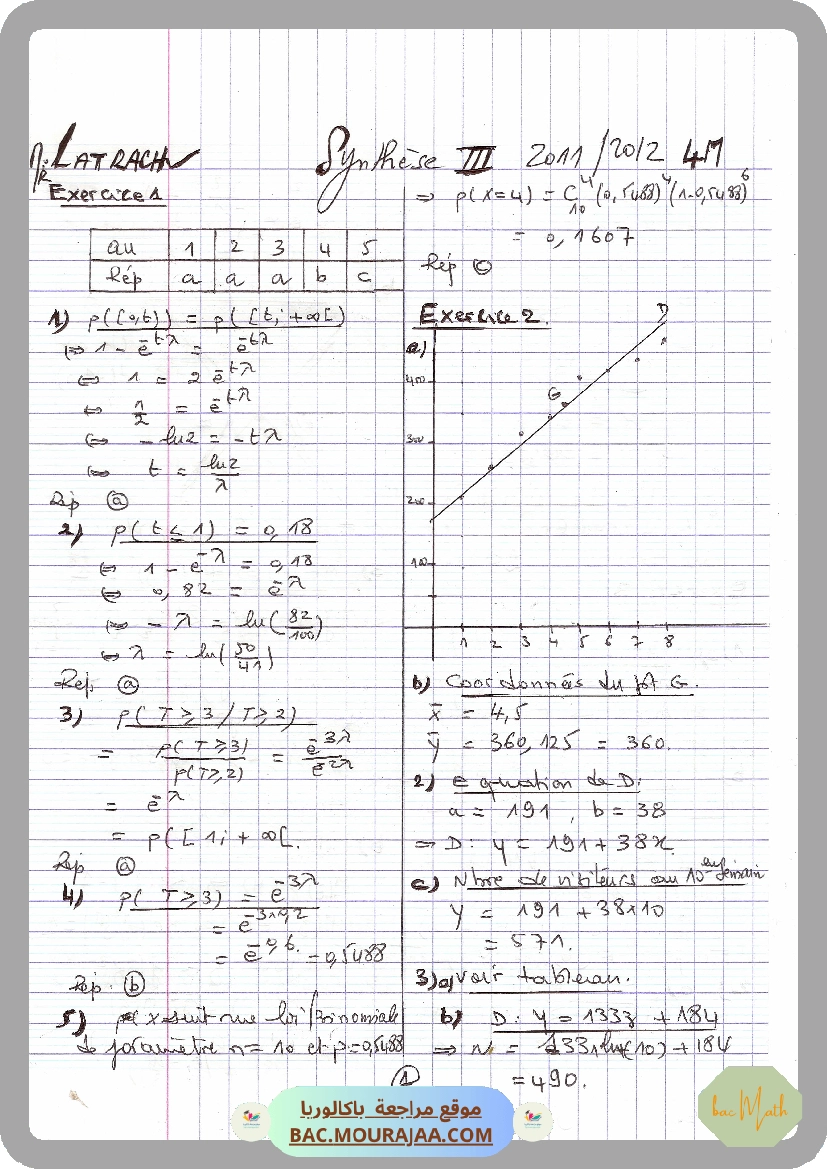 Mr: LATRACH
Synthèse III 2011/2012 4M
Exercice 1
au 1 2 3 4 5
Rép a a a b c
1) p([0,t)) = p([t; +∞[)
⇔ 1 - e^-tλ = e^-tλ
⇔ 1 = 2 e^-tλ
⇔ 1/2 = e^-tλ
⇔ - ln2 = -tλ
⇔ t = ln2/λ
Rép ⓐ
2) p(t ≤ 1) = 0,18
⇔ 1 - e^-λ = 0,18
⇔ 0,82 = e^-λ
⇔ - λ = ln(82/100)
⇔ λ = ln(50/41)
Rép. ⓐ
3) p(T ≥ 3 / T ≥ 2)
= p(T ≥ 3)/p(T ≥ 2) = e^-3λ/e^-2λ
= e^-λ
= p([1; +∞[.
Rép ⓐ
4) p(T ≥ 3) = e^-3λ
= e^-3×0,2
= e^-0,6. = 0,5488
Rép. ⓑ
5) X suit une loi binomiale
de paramètre n = 10 et p = 0,5488
⇒ p(X=4) = C_10^4 (0,5488)^4 (1-0,5488)^6
= 0,1607
Rép ⓒ
Exercice 2.
a)
D
G
400
300
200
100
1 2 3 4 5 6 7 8
b) Coordonnées du pt G.
x̄ = 4,5
ȳ = 360,125 = 360.
2) equation de D:
a = 191, b = 38
⇒ D: y = 191 + 38x
c) Nbre de visiteurs au 10^em semain
Y = 191 + 38×10
= 571.
3) a) Voir tableau.
b) D: y = 133z + 184
⇒ = 133×ln(10) + 184
= 490.
1
موقع مراجعة باكالوريا
BAC.MOURAJAA.COM
bac Math